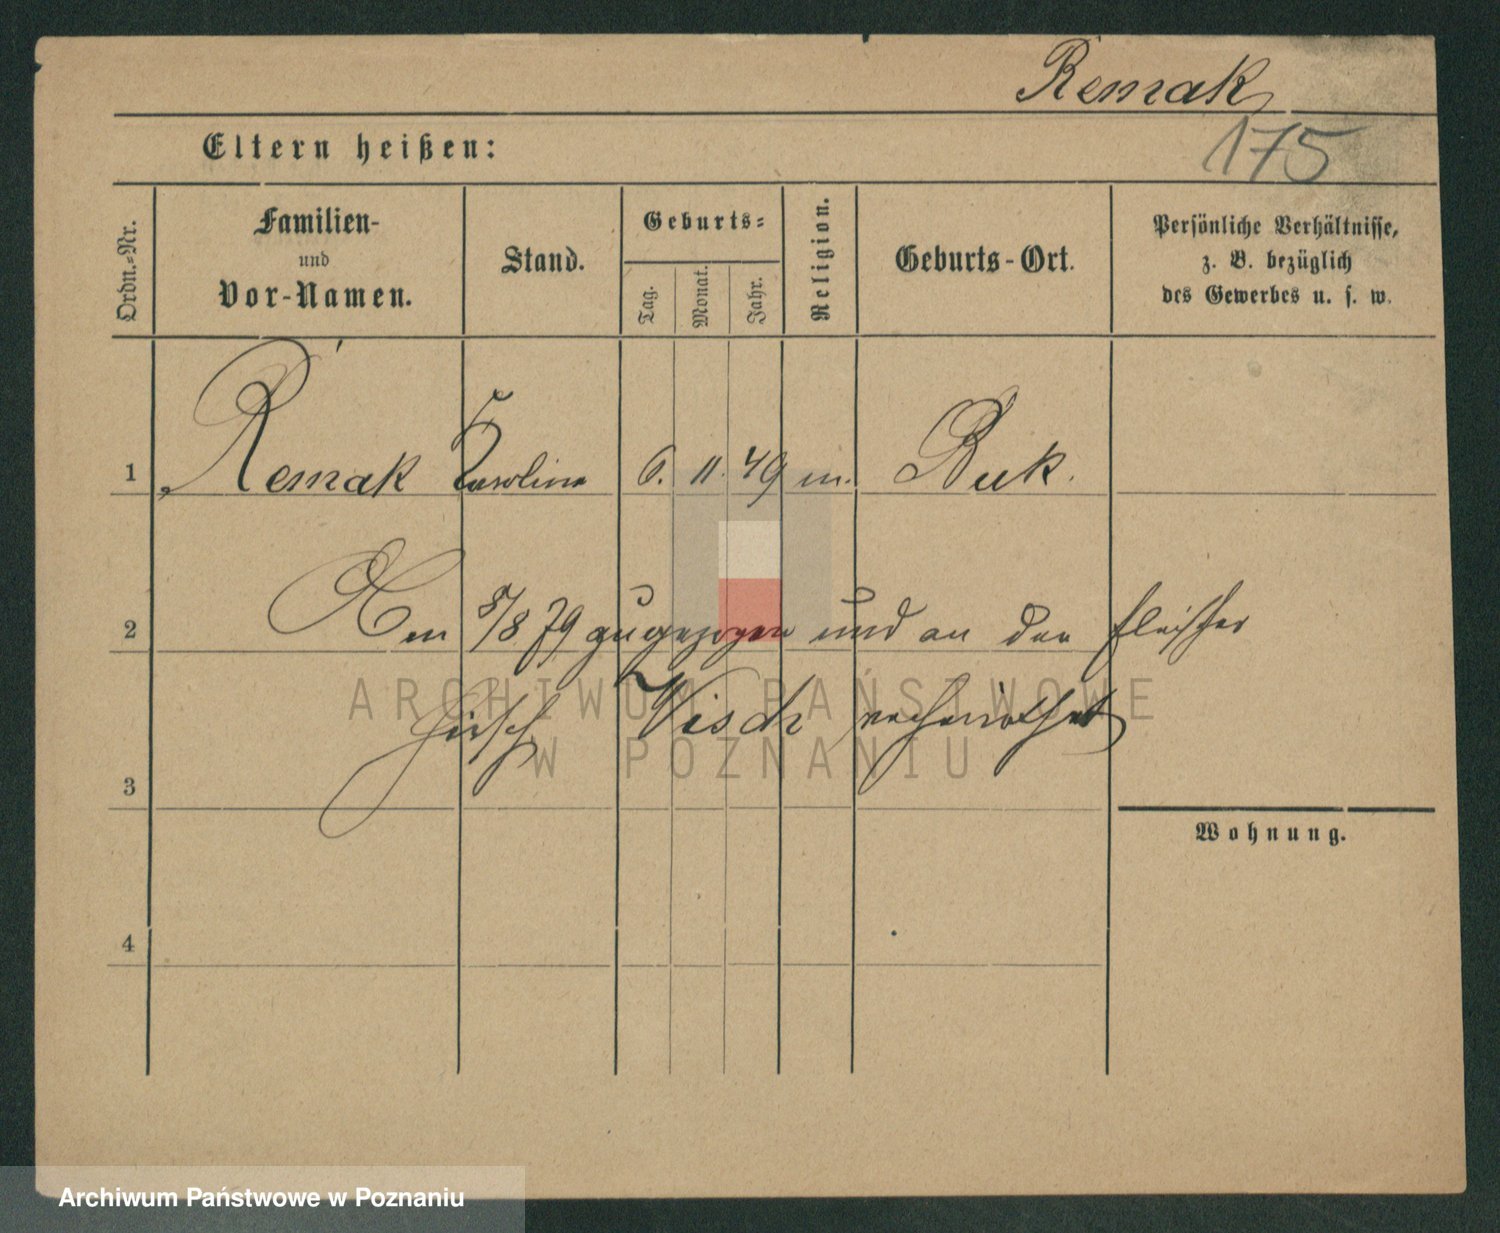 Remak
175
Eltern heißen:
Ordn.-Nr.
Familien-
und
Vor-Namen.
Stand.
Geburts-
Tag.
Monat.
Jahr.
Religion.
Geburts-Ort.
Persönliche Verhältnisse,
z. B. bezüglich
des Gewerbes u. s. w.
1 Remak Karoline 6. 11. 49 m. Buk.
2 8/8 79 zugezogen und an den Fleischer
Hirsch Wisch verheirathet
3
Wohnung.
4
ARCHIWUM PAŃSTWOWE
W POZNANIU
Archiwum Państwowe w Poznaniu